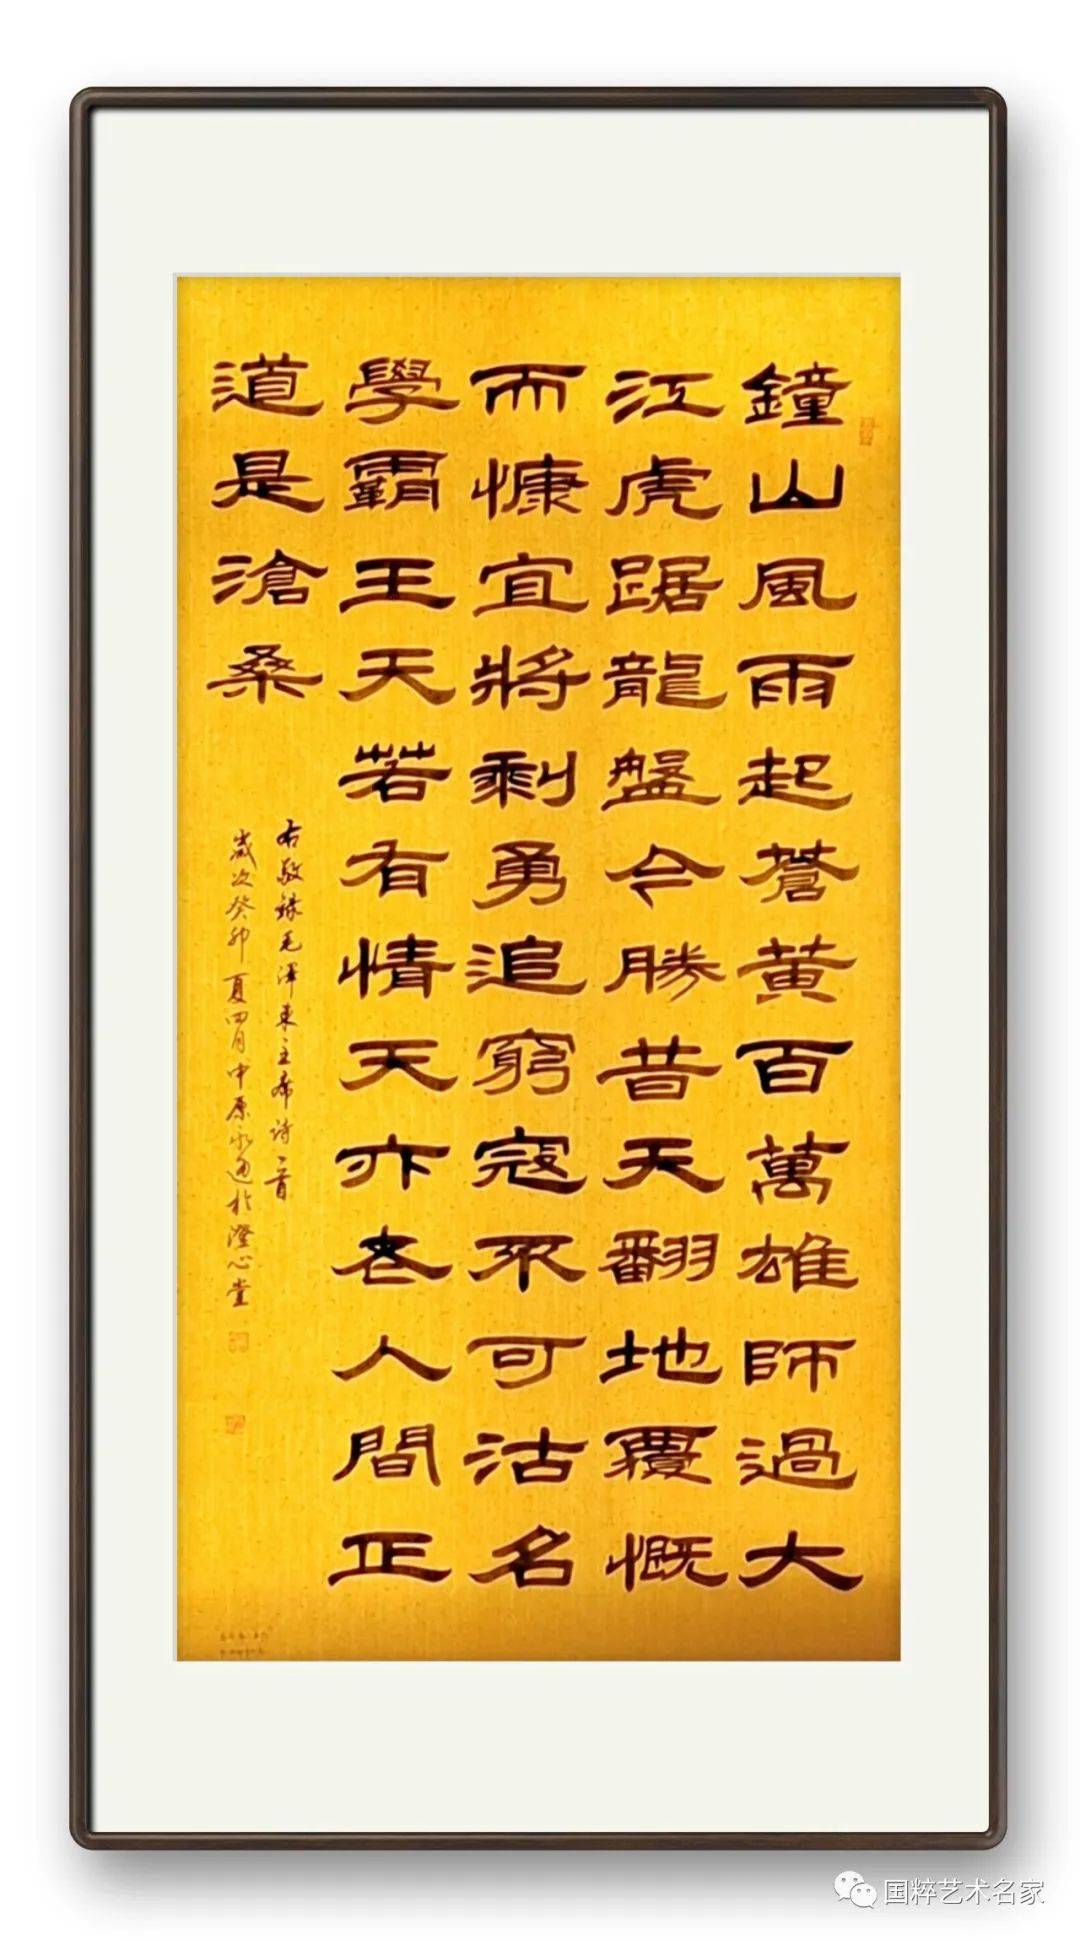 鐘山風雨起蒼黃百萬雄師過大
江虎踞龍盤今勝昔天翻地覆慨
而慷宜將剩勇追窮寇不可沽名
學霸王天若有情天亦老人間正
道是滄桑
右敬錄毛澤東主席詩一首
歲次癸卯夏四月中原永通於澄心堂
国粹艺术名家